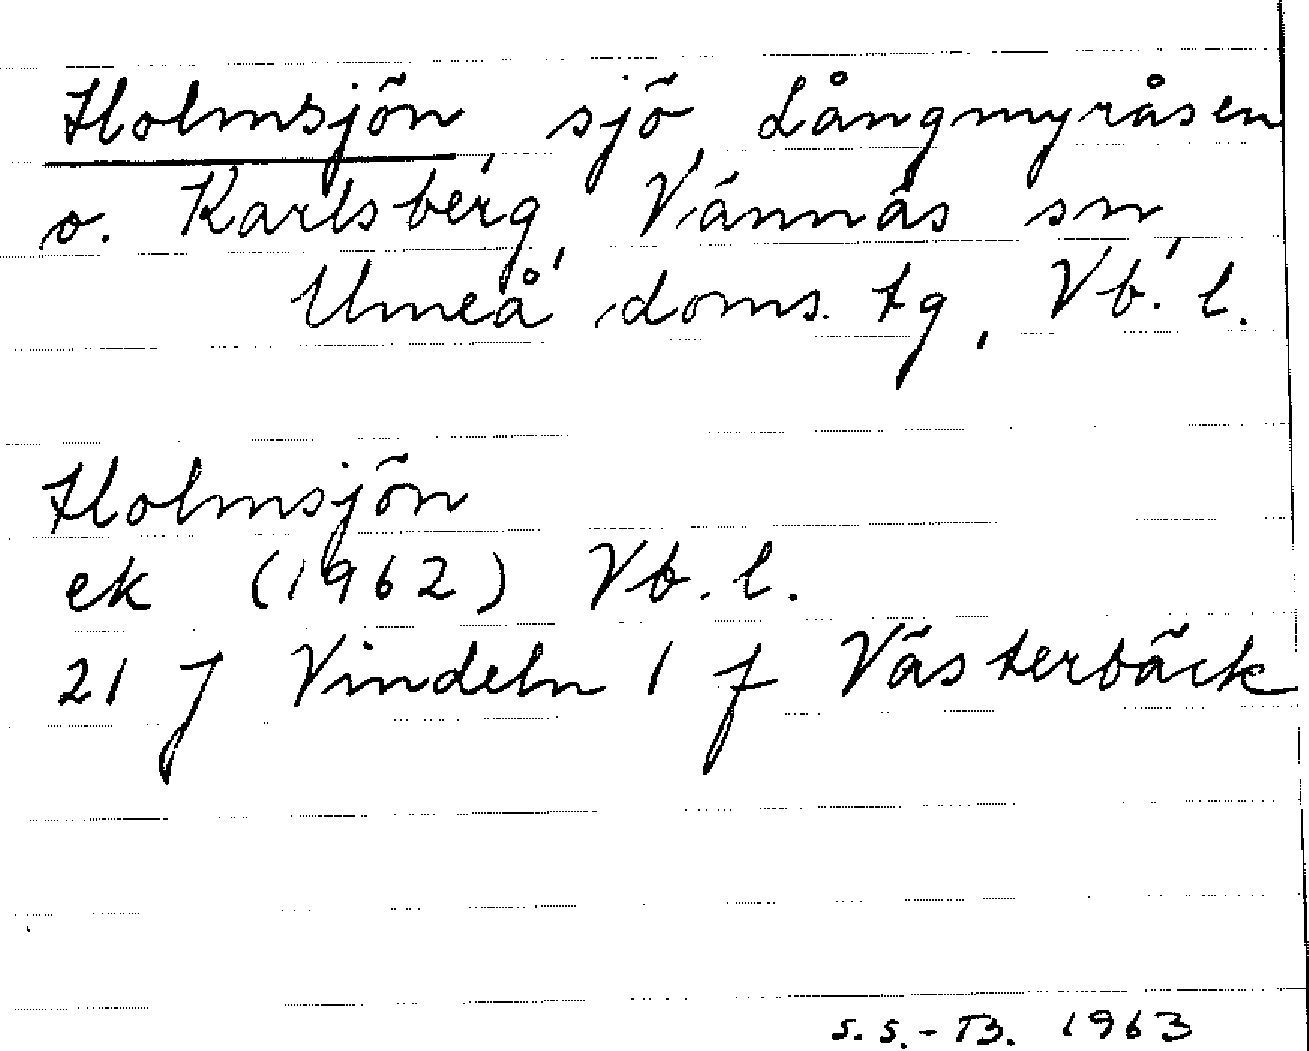 Holmsjön, sjö, Långmyråsen
o. Karlsberg, Vännäs sn,
Umeå doms. tg, Vb. l.
Holmsjön
ek (1962) Vb. l.
21 J Vindeln 1 f Västerbäck
S. S. - B. 1963